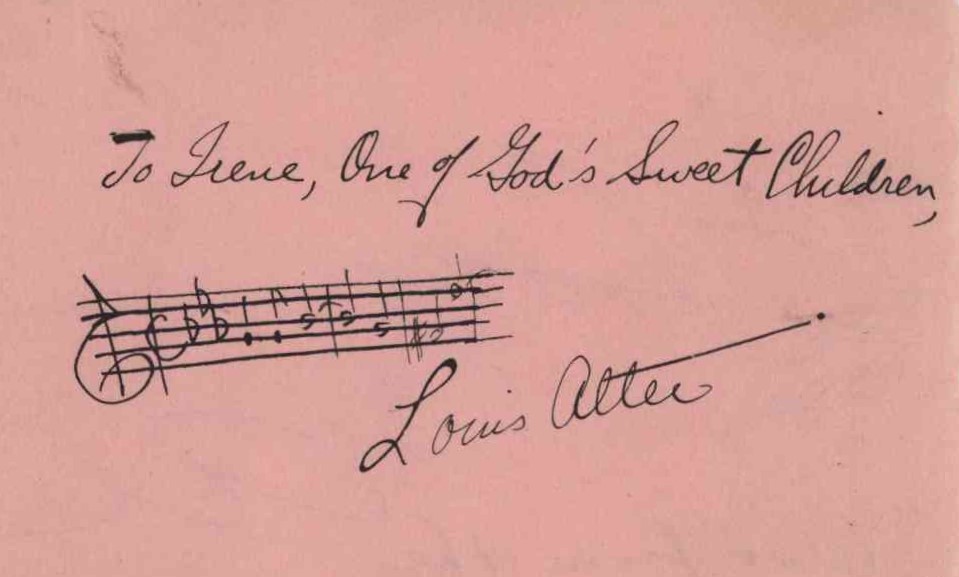 To Irene, One of God's Sweet Children,
Louis Alter